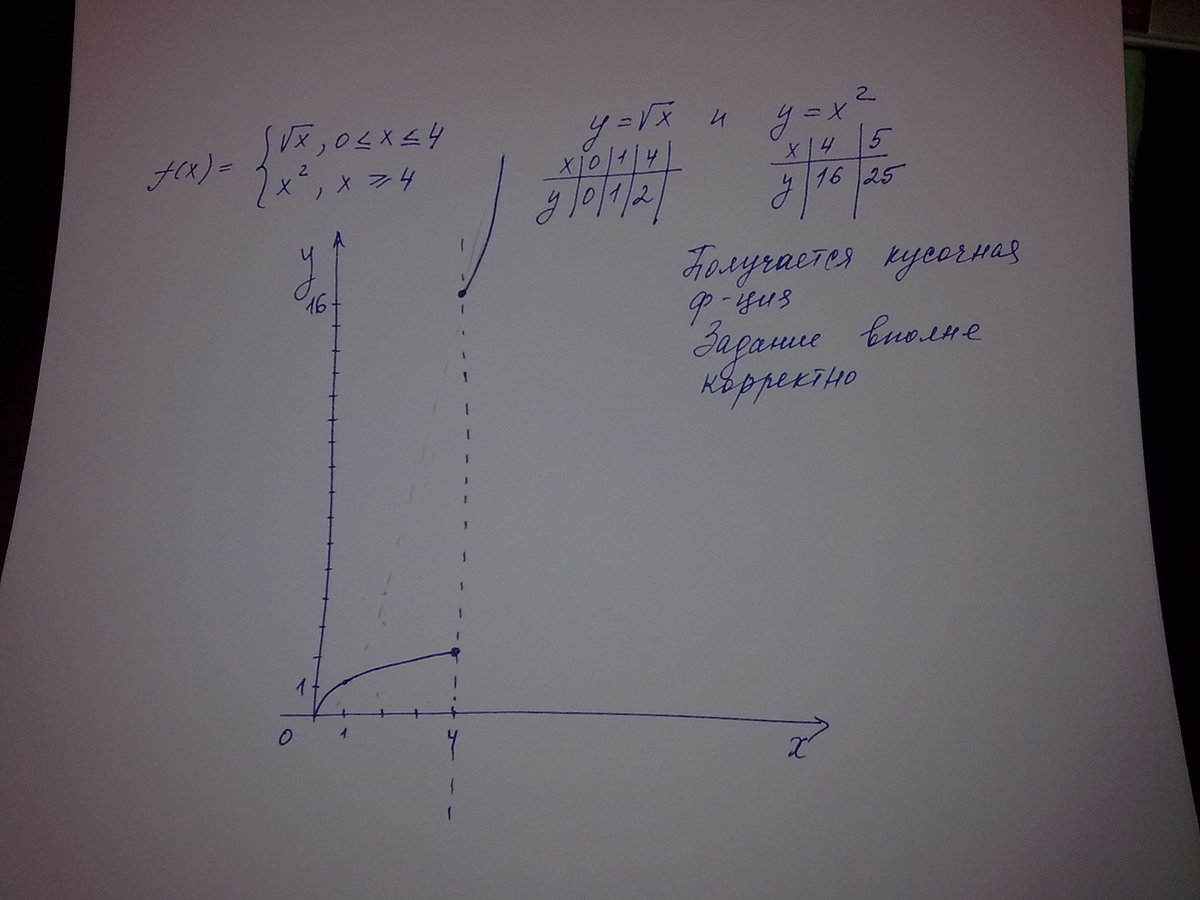 f(x) = { √x, 0 ≤ x ≤ 4
x², x ⩾ 4
y = √x и y = x²
x | 0 | 1 | 4 |
y | 0 | 1 | 2 |
x | 4 | 5
y | 16 | 25
Получается кусочная
ф-ция
Задание вполне
корректно
y
16
1
0 1 4 x